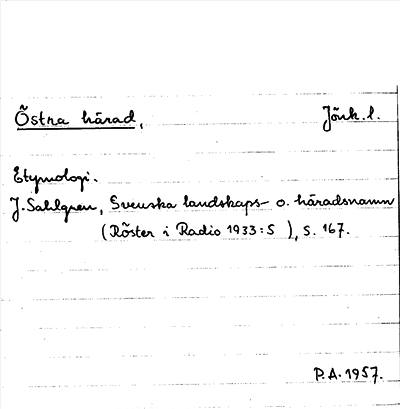 Östra härad, Jönk. l.
Etymologi.
J. Sahlgren, Svenska landskaps- o. häradsnamn
(Röster i Radio 1933:5 ), s. 167.
P.A. 1957.